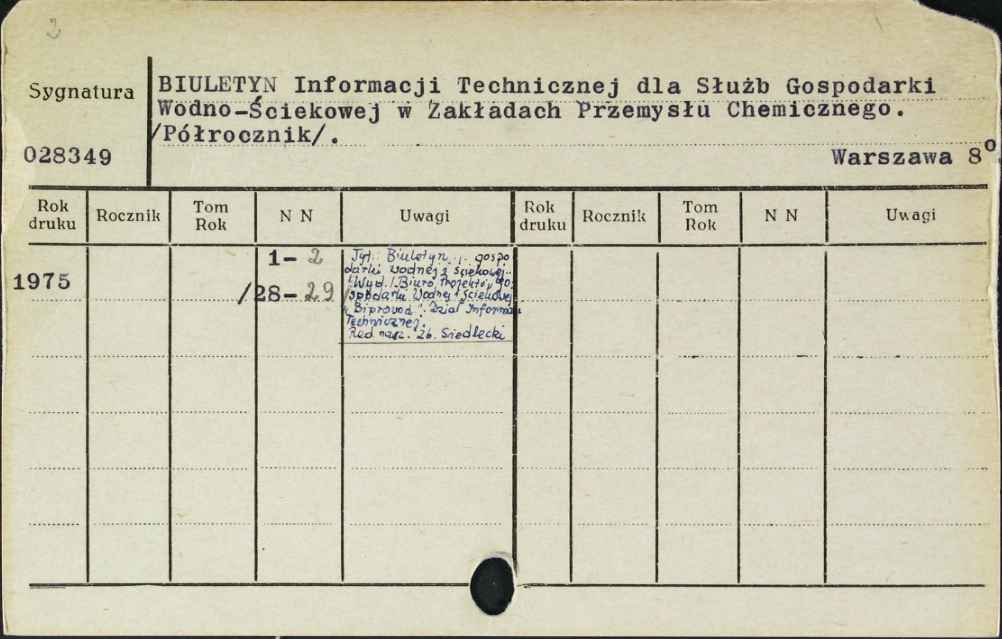 2
Sygnatura
BIULETYN Informacji Technicznej dla Służb Gospodarki
Wodno-Ściekowej w Zakładach Przemysłu Chemicznego.
/Półrocznik/.
028349
Warszawa 8º
Rok druku Rocznik Tom Rok N N Uwagi Rok druku Rocznik Tom Rok N N Uwagi
1975
1- 2
/28- 29/
Tyt. Biuletyn ... gospo
darki wodnej i ściekowej..
/Wyd./ Biuro Projektów go
spodarki Wodnej i Ściekowej
"Biprowod". Dział Informacji
Technicznej.
Red. nacz. Zb. Siedlecki